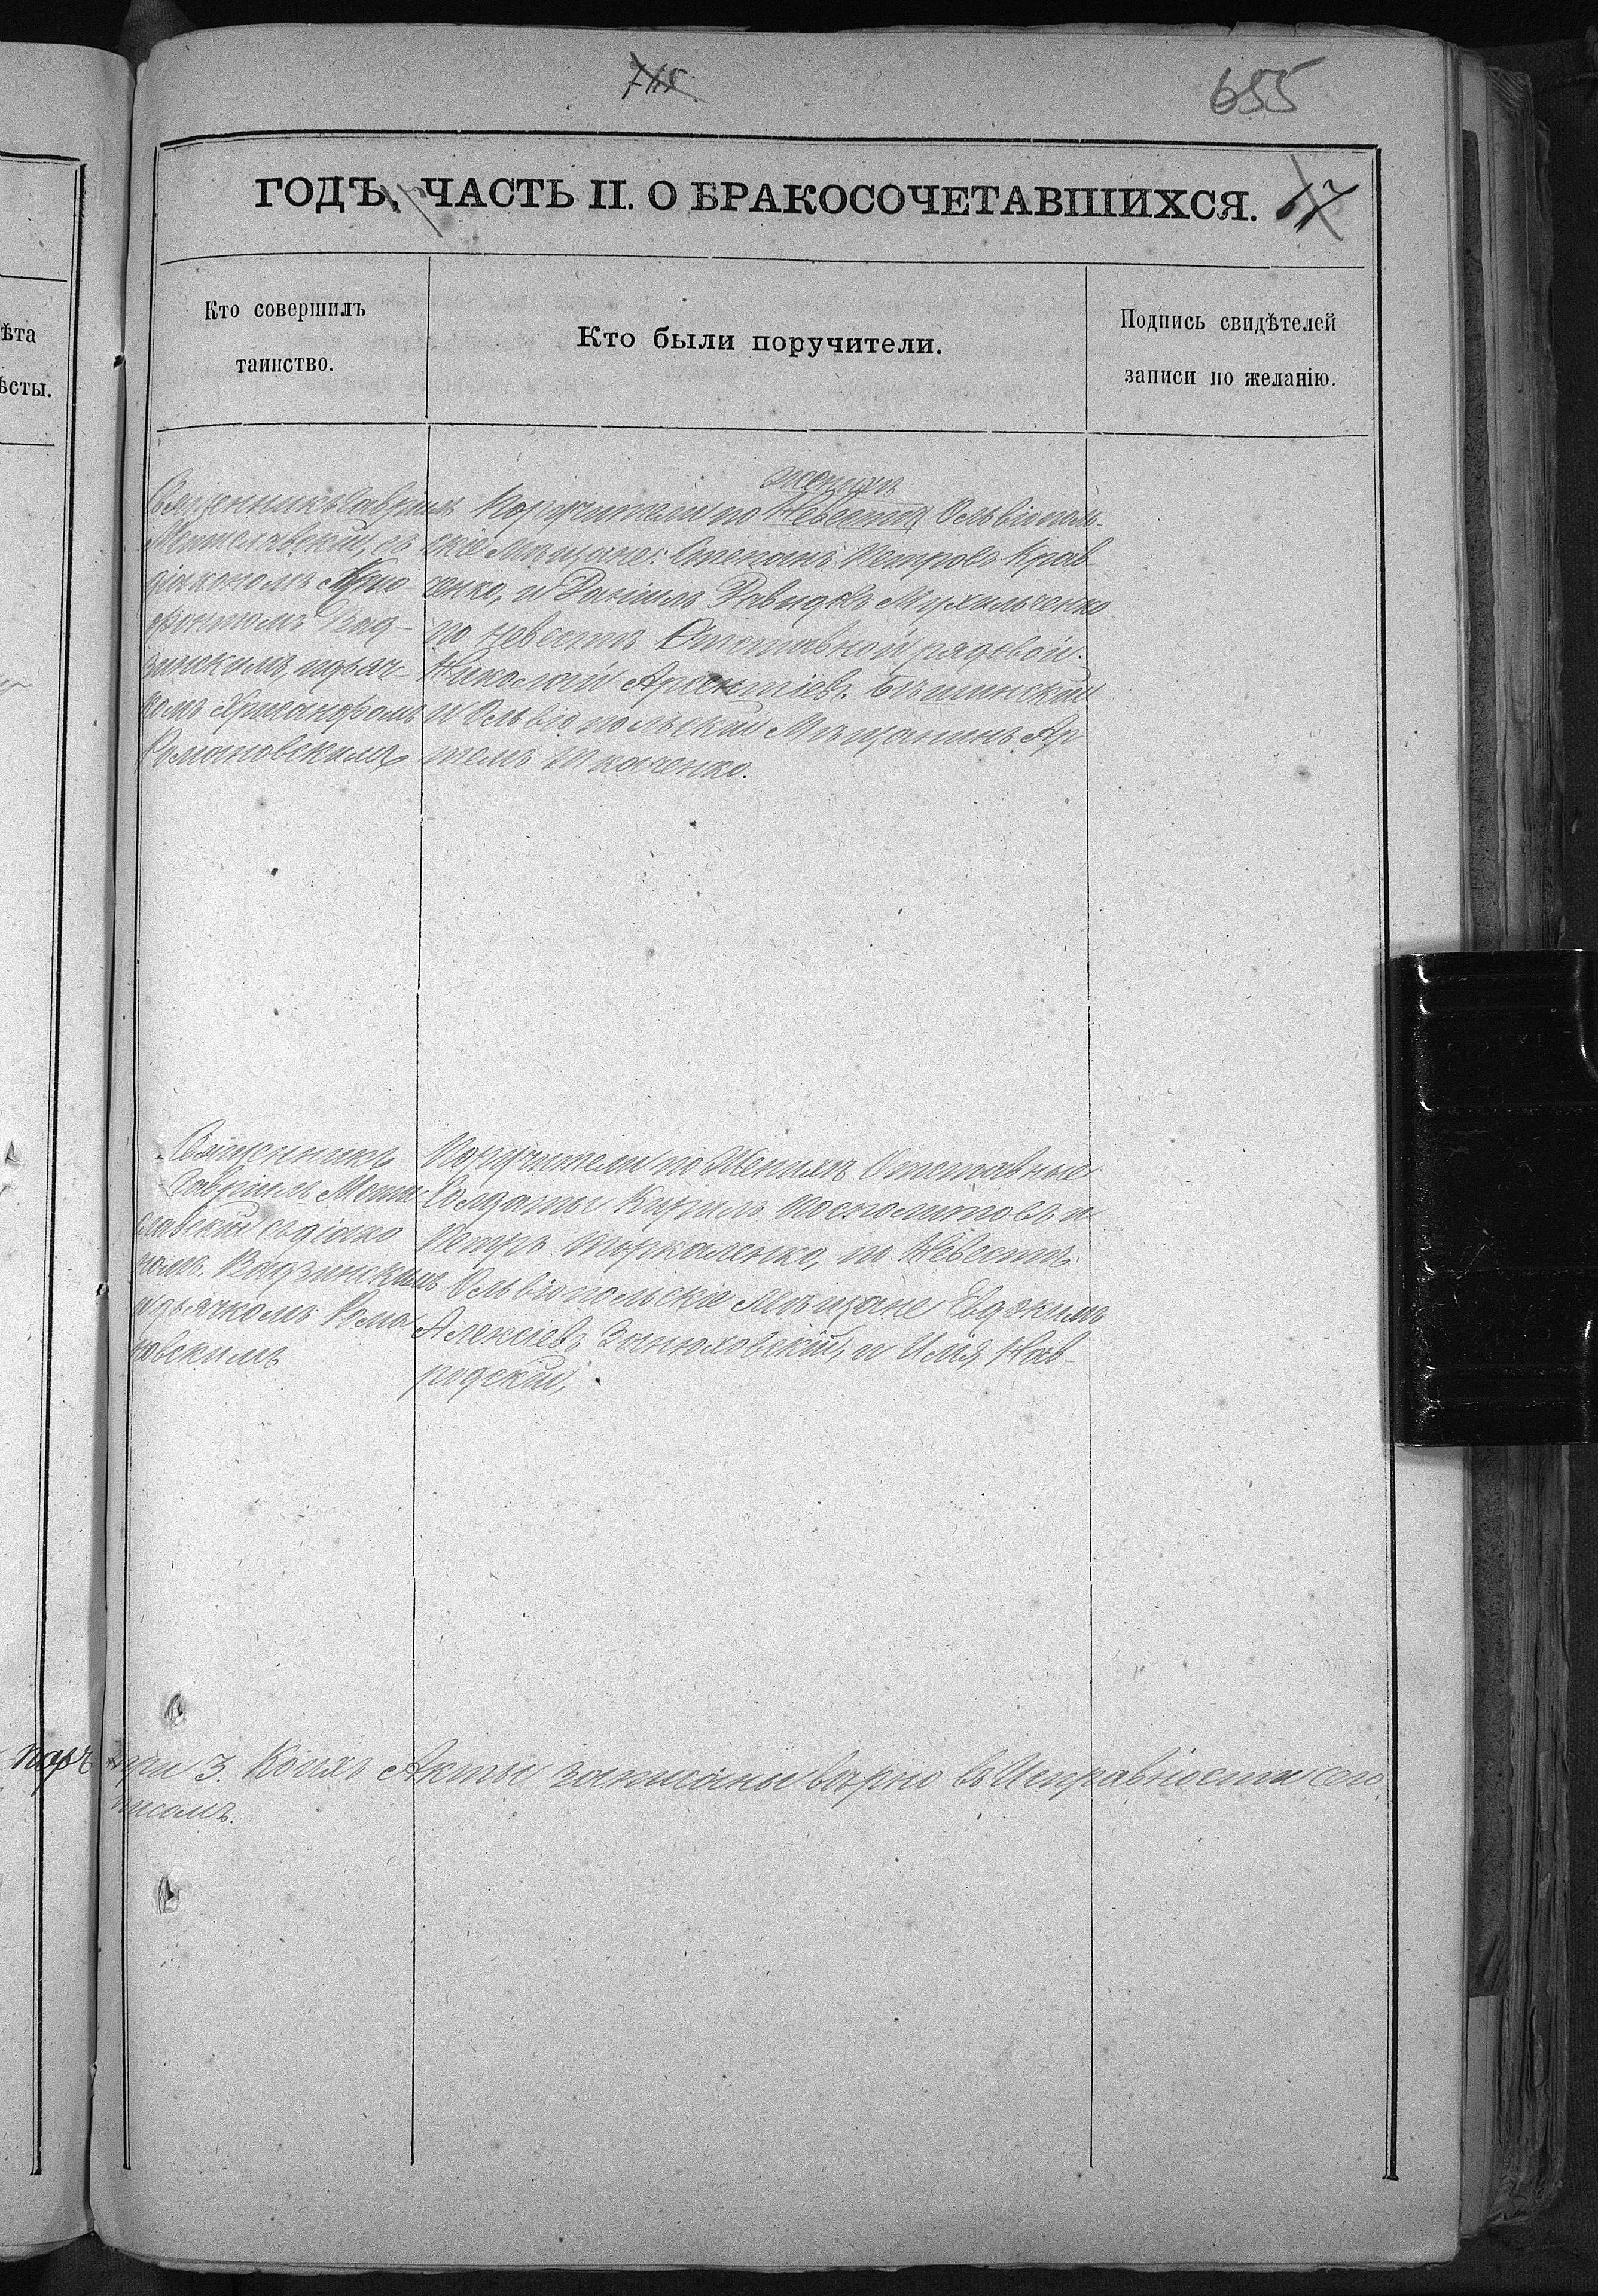 655
ГОДЪ, ЧАСТЬ II. О БРАКОСОЧЕТАВШИХСЯ. 17
Кто совершилъ
таинство.
Кто были поручители.
Подпись свидѣтелей
записи по желанію.
ѣта
ѣсты.
Священникъ Гавріилъ
Мстиславскій, съ
діакономъ
Вад-
зинскимъ, и дьяч-
комъ Хрисанфомъ
Романовскимъ
женихѣ
Поручители по Невестѣ Ольвіополь-
скіе Мѣщане: Стефанъ Петровъ Крав-
ченко, и Даніилъ Давидовъ Мухильченко
по невестѣ Отставной рядовой
Николай Арсентіевъ
и Ольвіопольскій Мѣщанинъ Ар
темъ Ткаченко.
Священникъ
Гавріилъ Мсти
славскій съ діако
номъ Вадзинскимъ
и дьячкомъ Рома
новскимъ
Поручители по Женихѣ Отставные
Солдаты Кирилъ Посполитовъ и
Петръ Торкаленко, по Невестѣ
Ольвіопольскіе Мѣщане Евдокимъ
Алексіевъ Зинюховскій, и Илія Нав-
родскій,
паръ три 3. Коихъ Акты записаны вѣрно въ Исправности сего